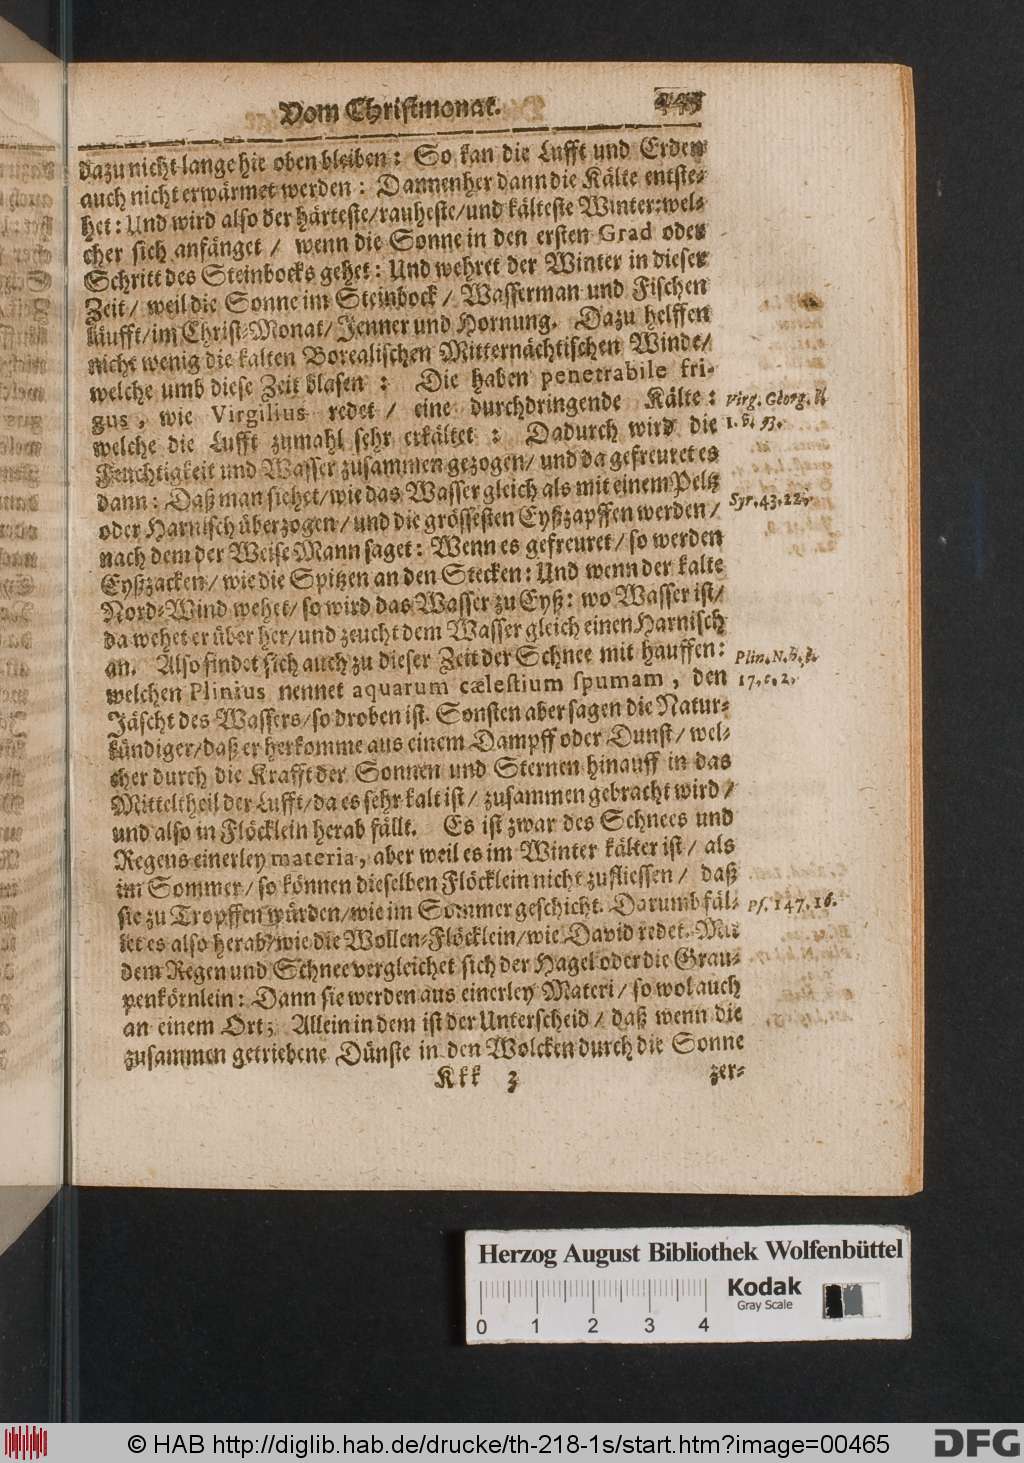 Vom Christmonat. 445
dazu nicht lange hie oben bleiben: So kan die Lufft und Erden
auch nicht erwärmet werden: Dannenher dann die Kälte entste-
het: Und wird also der härteste/rauheste/und kälteste Winter: wel-
cher sich anfänget / wenn die Sonne in den ersten Grad oder
Schritt des Steinbocks gehet: Und wehret der Winter in dieser
Zeit/ weil die Sonne im Steinbock / Wasserman und Fischen
läufft/im Christ-Monat/ Jenner und Hornung. Dazu helffen
nicht wenig die kalten Borealischen Mitternächtischen Winde/
welche umb diese Zeit blasen : Die haben penetrabile fri-
gus, wie Virgilius redet / eine durchdringende Kälte:
Virg. Georg. l.
welche die Lufft zumahl sehr erkältet : Dadurch wird die
1. v. 93.
Feuchtigkeit und Wasser zusammen gezogen/ und da gefreuret es
dann: Daß man siehet/wie das Wasser gleich als mit einem Peltz
Syr. 43. 22.
oder Harnisch überzogen/ und die grössesten Eyßzapffen werden/
nach dem der Weise Mann saget: Wenn es gefreuret/ so werden
Eyßzacken/ wie die Spitzen an den Stecken: Und wenn der kalte
Nord-Wind wehet/ so wird das Wasser zu Eyß: wo Wasser ist/
da wehet er über her/und zeucht dem Wasser gleich einen Harnisch
an. Also findet sich auch zu dieser Zeit der Schnee mit hauffen:
Plin. N. h. l.
welchen Plinius nennet aquarum cælestium spumam, den
17. c. 2.
Jäscht des Wassers/so droben ist. Sonsten aber sagen die Natur-
kündiger/daß er herkomme aus einem Dampff oder Dunst/ wel-
cher durch die Krafft der Sonnen und Sternen hinauff in das
Mitteltheil der Lufft/da es sehr kalt ist/ zusammen gebracht wird/
und also in Flöcklein herab fällt. Es ist zwar des Schnees und
Regens einerley materia, aber weil es im Winter kälter ist / als
im Sommer/ so können dieselben Flöcklein nicht zufliessen / daß
sie zu Tropffen würden/wie im Sommer geschicht. Darumb fäl-
Ps. 147. 16.
let es also herab/wie die Wollen-Flöcklein/wie David redet. Mit
dem Regen und Schnee vergleichet sich der Hagel oder die Grau-
penkörnlein: Dann sie werden aus einerley Materi/ so wol auch
an einem Ort; Allein in dem ist der Unterscheid / daß wenn die
zusammen getriebene Dünste in den Wolcken durch die Sonne
Kkk 3 zer-
Herzog August Bibliothek Wolfenbüttel
Kodak
Gray Scale
0 1 2 3 4
© HAB http://diglib.hab.de/drucke/th-218-1s/start.htm?image=00465
DFG